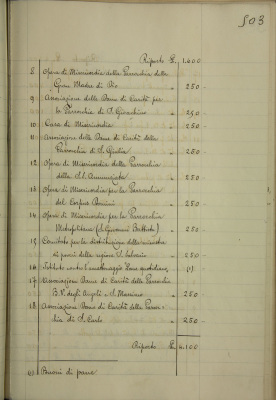 503
Riporto L. 1.600
8. Opera di Misericordia della Parrocchia della
Gran Madre di Dio " 250 -
9. Associazione delle Dame di Carità per
la Parrocchia di S. Gioachino " 250 -
10. Casa di Misericordia " 250 -
11. Associazione delle Dame di Carità della
Parrocchia di S. Giulia " 250 -
12. Opera di Misericordia della Parrocchia
della S.S. Annunziata " 250 -
13. Opera di Misericordia per la Parrocchia
del Corpus Domini " 250 -
14. Opera di Misericordia per la Parrocchia
Metropolitana (S. Giovanni Battista) " 250 -
15. Comitato per la distribuzione delle minestre
ai poveri della regione S. Salvario " 250 -
16. Istituto contro l'accattonaggio Pane quotidiano " (1) -
17. Associazione Dame di Carità della Parrocchia
B.V. degli Angeli e S. Massimo " 250 -
18. Associazione Dame di Carità della Parroc-
chia di S. Carlo " 250 -
Riporto L. 4.100
(1) Buoni di pane